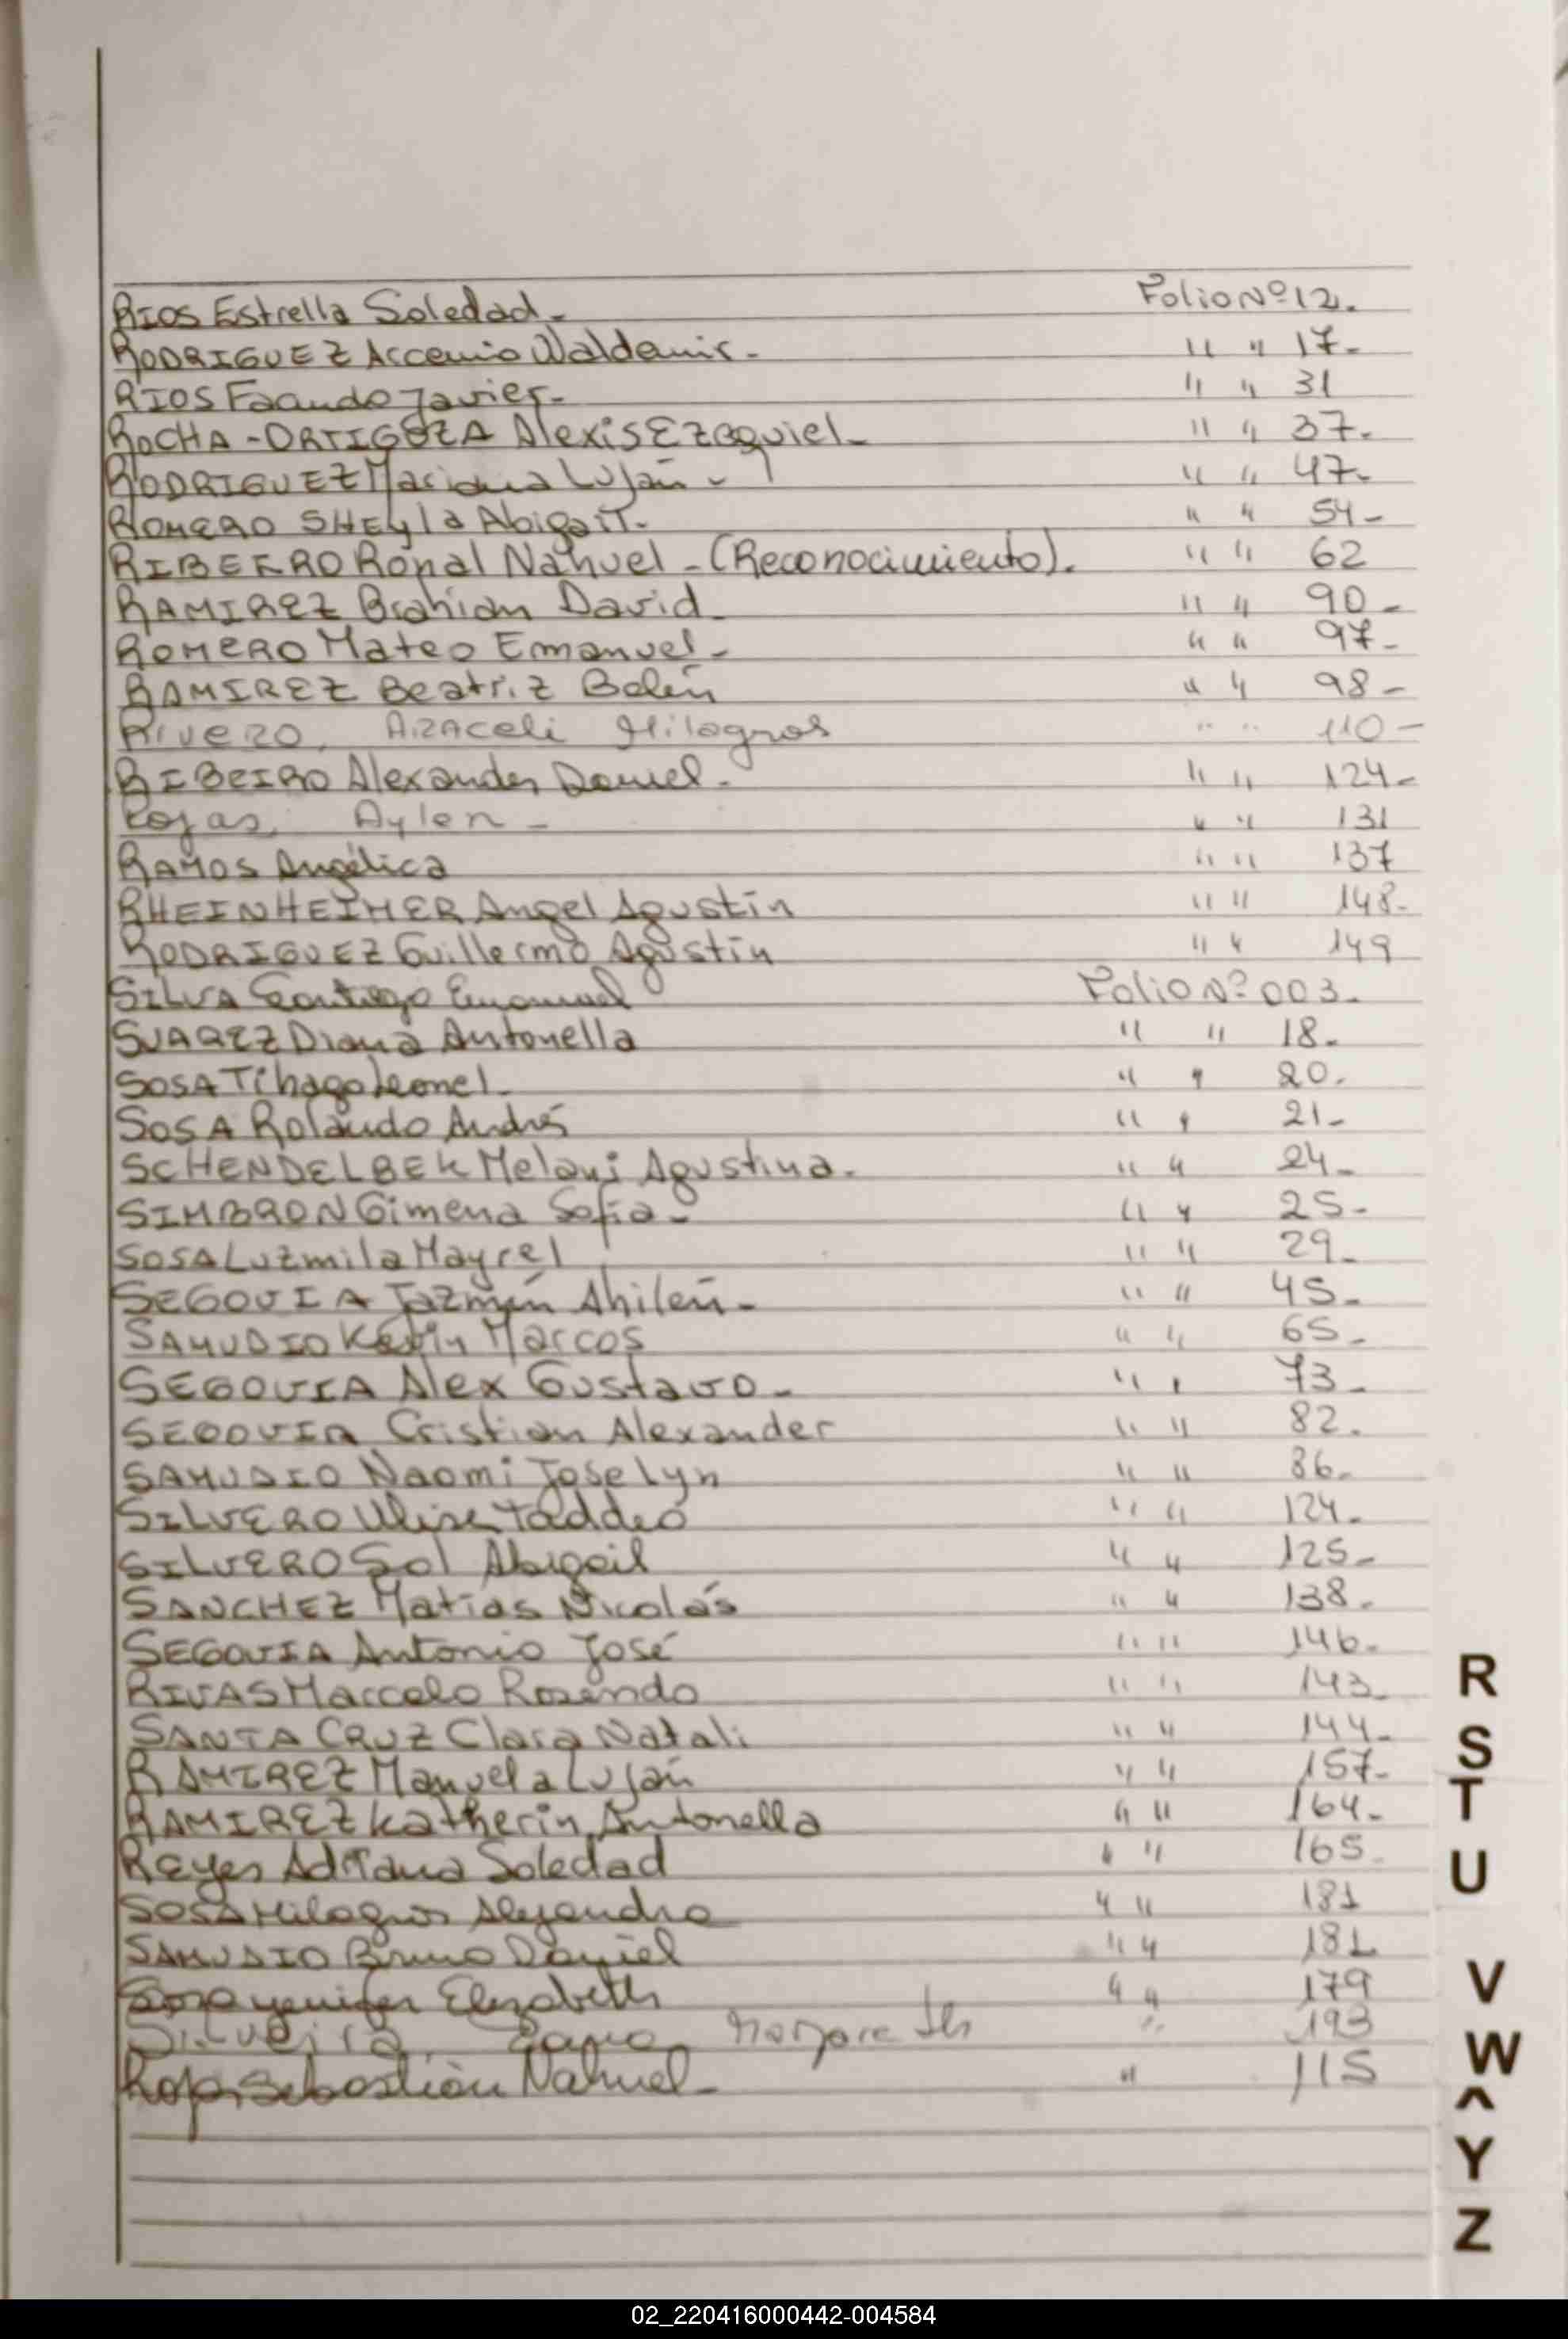 RIOS Estrella Soledad - Folio Nº 12.
RODRIGUEZ Accenio Waldemir. " " 17-
RIOS Facundo Javier- " " 31
ROCHA-ORTIGOZA Alexis Ezequiel- " " 37.
RODRIGUEZ Mariana Luján - " " 47-
ROMERO SHEyla Abigail. " " 54-
RIBEIRO Ronal Nahuel - (Reconocimiento). " " 62
RAMIREZ Brahian David " " 90-
ROMERO Mateo Emanuel- " " 97-
RAMIREZ Beatriz Belén " " 98-
Rivero, Araceli Milagros " " 110-
RIBEIRO Alexander Daniel. " " 124-
Rojas, Aylen - " " 131
RAMOS Angélica " " 137
RHEINHEIMER Angel Agustín " " 148-
RODRIGUEZ Guillermo Agustín " " 149
SILVA Santiago Emanuel Folio Nº 003.
SUAREZ Diana Antonella " " 18.
SOSA Tihago Leonel. " " 20.
SOSA Rolando Andrés " " 21-
SCHENDELBEK Melani Agustina. " " 24-
SIMBRON Gimena Sofia- " " 25-
SOSA Luzmila Mayrel " " 29-
SEGOVIA Jazmín Ahilen- " " 45-
SAMUDIO Kevin Marcos " " 65-
SEGOVIA Alex Gustavo- " " 73-
SEGOVIA Cristian Alexander " " 82.
SAMUDIO Naomi Joselyn " " 86.
SILVERO Ulise Taddeo " " 124.
SILVERO Sol Abigail " " 125-
SANCHEZ Matias Nicolás " " 138.
SEGOVIA Antonio José " " 146.
RIVAS Marcelo Rosendo " " 143-
SANTA CRUZ Clara Natali " " 144-
RAMIREZ Manuela Luján " " 157-
RAMIREZ Katherin Antonella " " 164-
Reyes Adriana Soledad " " 165-
SOSA Milagros Alejandra " " 181
SAMUDIO Bruno Daniel " " 181
Sosa yenifer Elizabeth " " 179
Silveira, Margareth " 193
Rojas Sebastián Nahuel- " 115
R
S
T
U
V
W
Y
Z
02_220416000442-004584